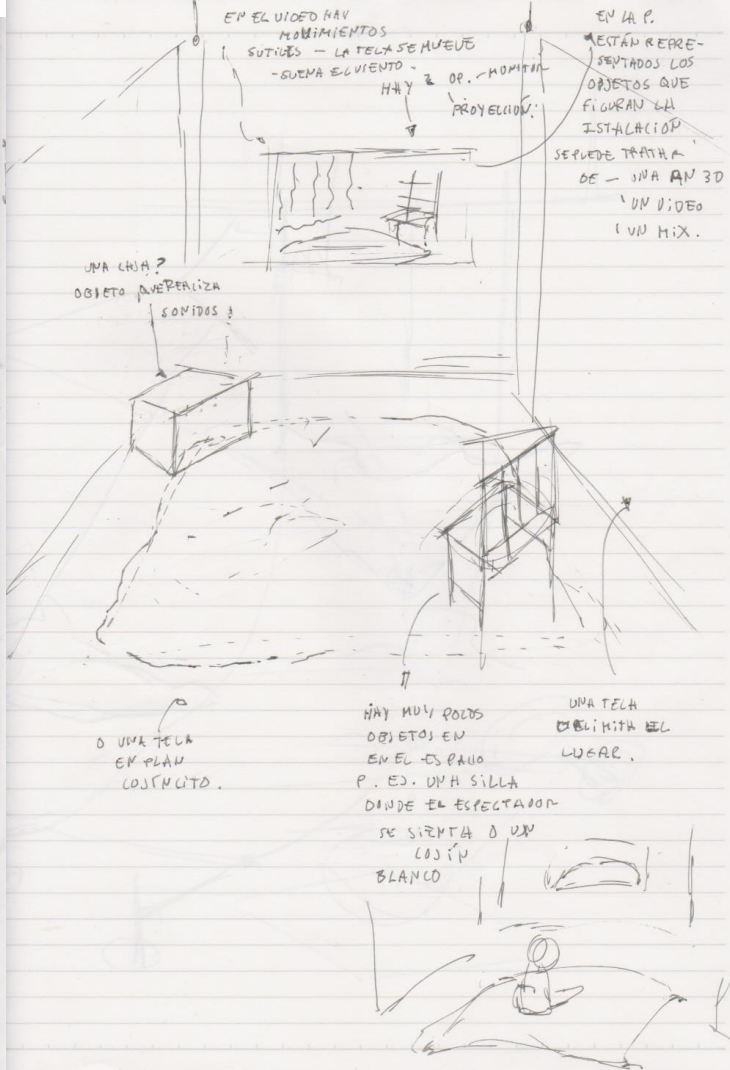 EN EL VIDEO HAY
MOVIMIENTOS
SUTILES – LA TELA SE MUEVE
- SUENA EL VIENTO -
HAY 2 OP. - MONITOR
PROYECCIÓN.
EN LA P.
ESTÁN REPRE-
SENTADOS LOS
OBJETOS QUE
FIGURAN LA
ISTALACIÓN
SE PUEDE TRATAR
DE - UNA AN 3D
' UN VIDEO
' UN MIX.
UNA CAJA?
OBJETO QUE REALIZA
SONIDOS
O UNA TELA
EN PLAN
COJINCITO.
HAY MUY POCOS
OBJETOS EN
EN EL ESPACIO
P. EJ. UNA SILLA
DONDE EL ESPECTADOR
SE SIENTA O UN
COJÍN
BLANCO
UNA TELA
DELIMITA EL
LUGAR.